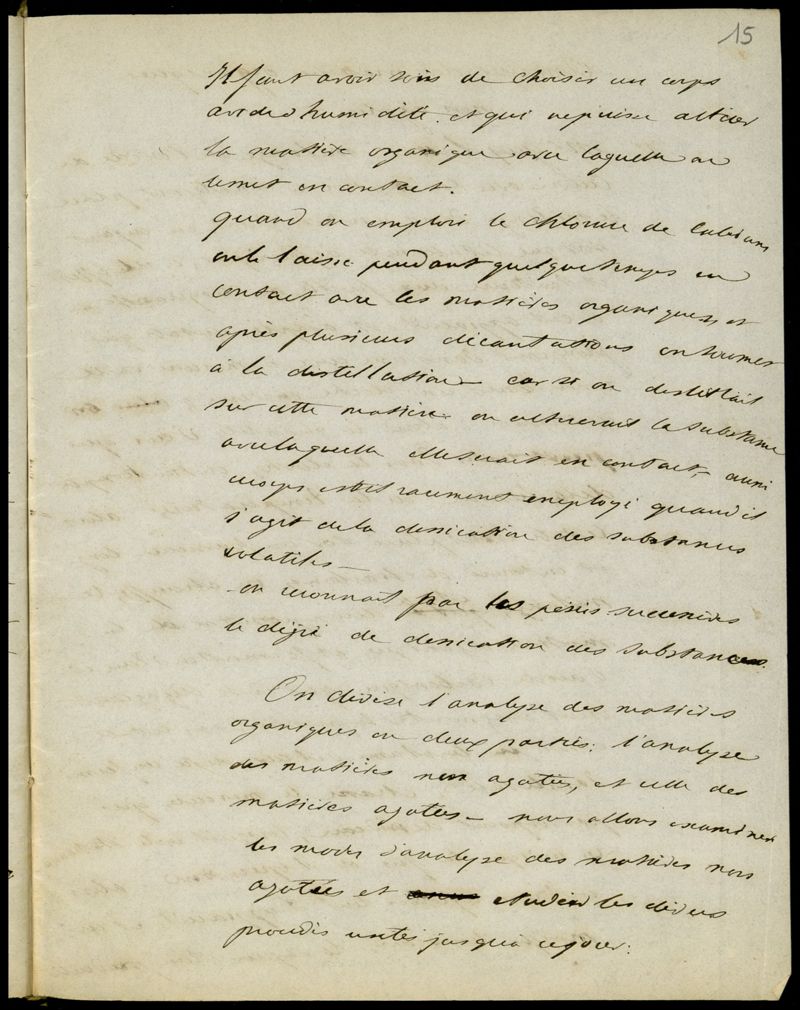 15
Il faut avoir soin de choisir un corps
avide d'humidité. et qui ne puisse altérer
la matière organique avec laquelle on
le met en contact.
quand on emploie le chlorure de calcium
on le laisse pendant quelque temps en
contact avec les matières organiques, et
après plusieurs décantations on soumet
à la distillation — car si on distillait
sur cette matière on altererait la substance
avec laquelle elle serait en contact, aussi
ce corps est il rarement employé quand il
s'agit de la dessication des substances
volatiles —
on reconnait par les pesées successives
le dégré de dessication des substances.
On divise l'analyse des matières
organiques en deux parties: l'analyse
des matières non azotées, et celle des
matières azotées — nous allons examiner
les modes d'analyse des matières non
azotées et etudier les divers
procédés usités jusqu'à ce jour: